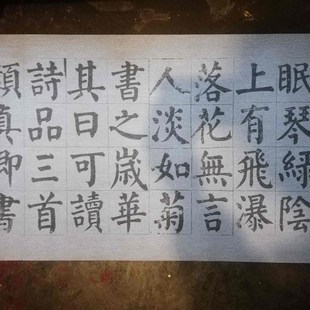 眠琴綠陰
上有飛瀑
落花無言
人淡如菊
書之歲華
其曰可讀
詩品三首
真即書